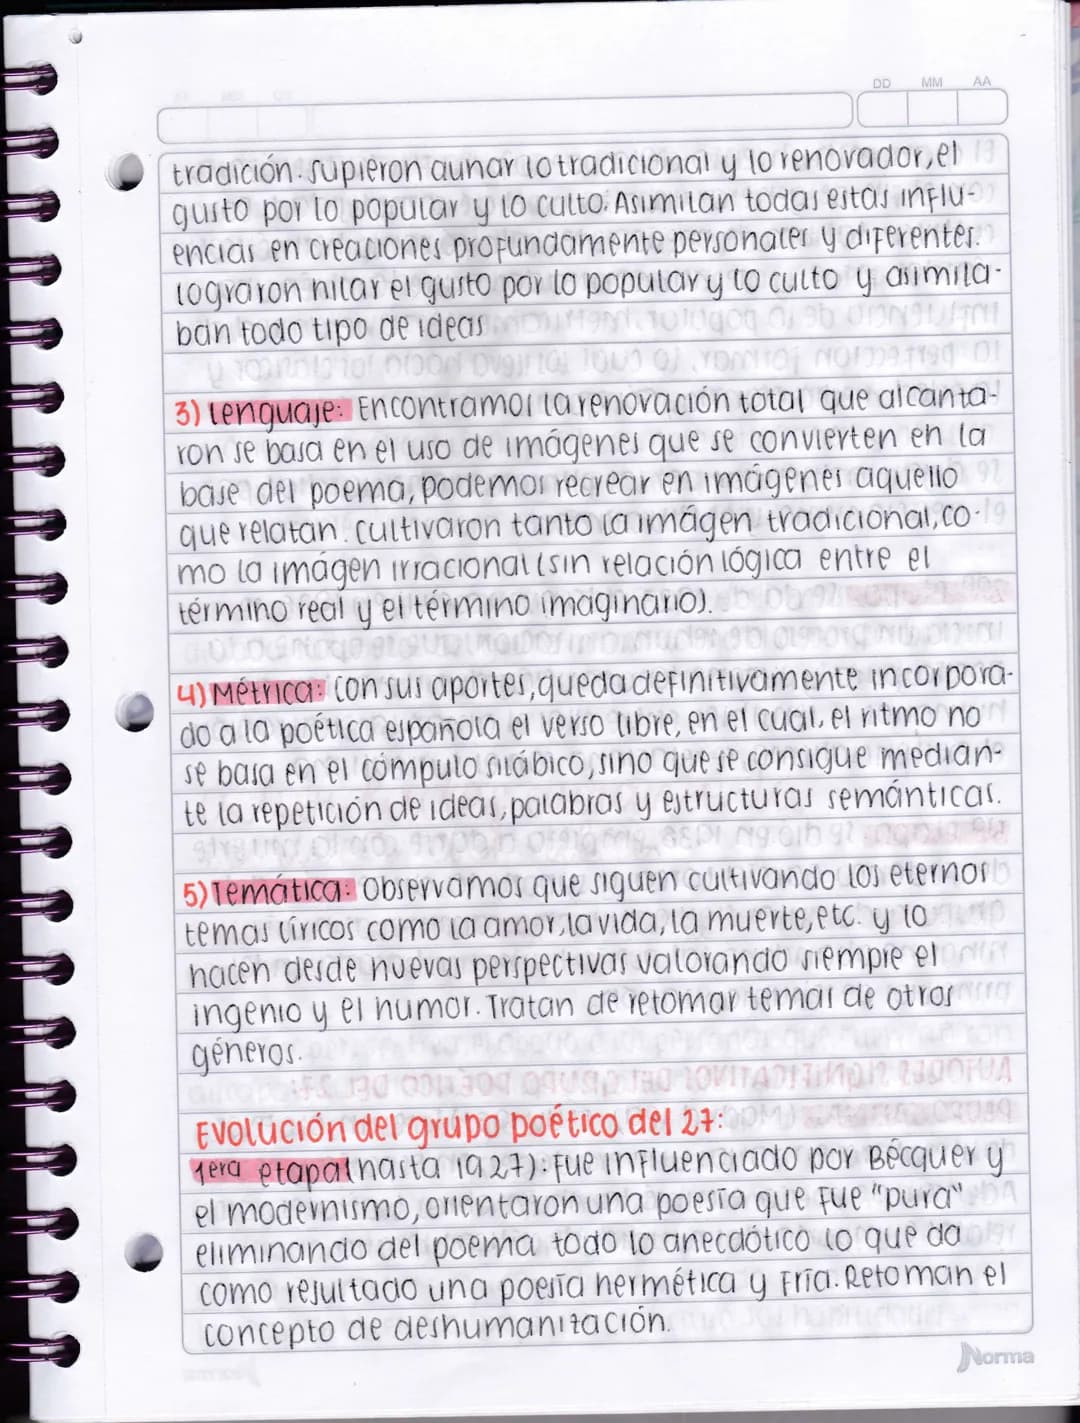 DD MM AA
tradición. Supieron aunar lo tradicional y lo renovador, el
gusto por lo popular y lo culto. Asimilan todas estas influ-
encias en creaciones profundamente personales y diferentes.
Lograron hilar el gusto por lo popular y lo culto y asimila-
ban todo tipo de ideas
3) Lenguaje: Encontramos la renovación total que alcanta-
ron se basa en el uso de imágenes que se convierten en la
base del poema, podemos recrear en imágenes aquello
que relatan. Cultivaron tanto la imágen tradicional, co-
mo la imágen irracional (sin relación lógica entre el
término real y el término imaginario).
4) Métrica: Con sus aportes, queda definitivamente incorpora-
do a la poética española el verso libre, en el cual, el ritmo no
se basa en el cómpulo silábico, sino que se consigue median-
te la repetición de ideas, palabras y estructuras semánticas.
5) Temática: Observamos que siguen cultivando los eternos
temas líricos como la amor, la vida, la muerte, etc. y lo
hacen desde nuevas perspectivas valorando siempre el
ingenio y el humor. Tratan de retomar temas de otros
géneros.
Evolución del grupo poético del 27:
1era etapa (hasta 1927): Fue influenciado por Bécquer y
el modernismo, orientaron una poesía que fue "pura"
eliminando del poema todo lo anecdótico lo que da
como resultado una poesía hermética y fría. Retoman el
concepto de deshumanización.
Norma